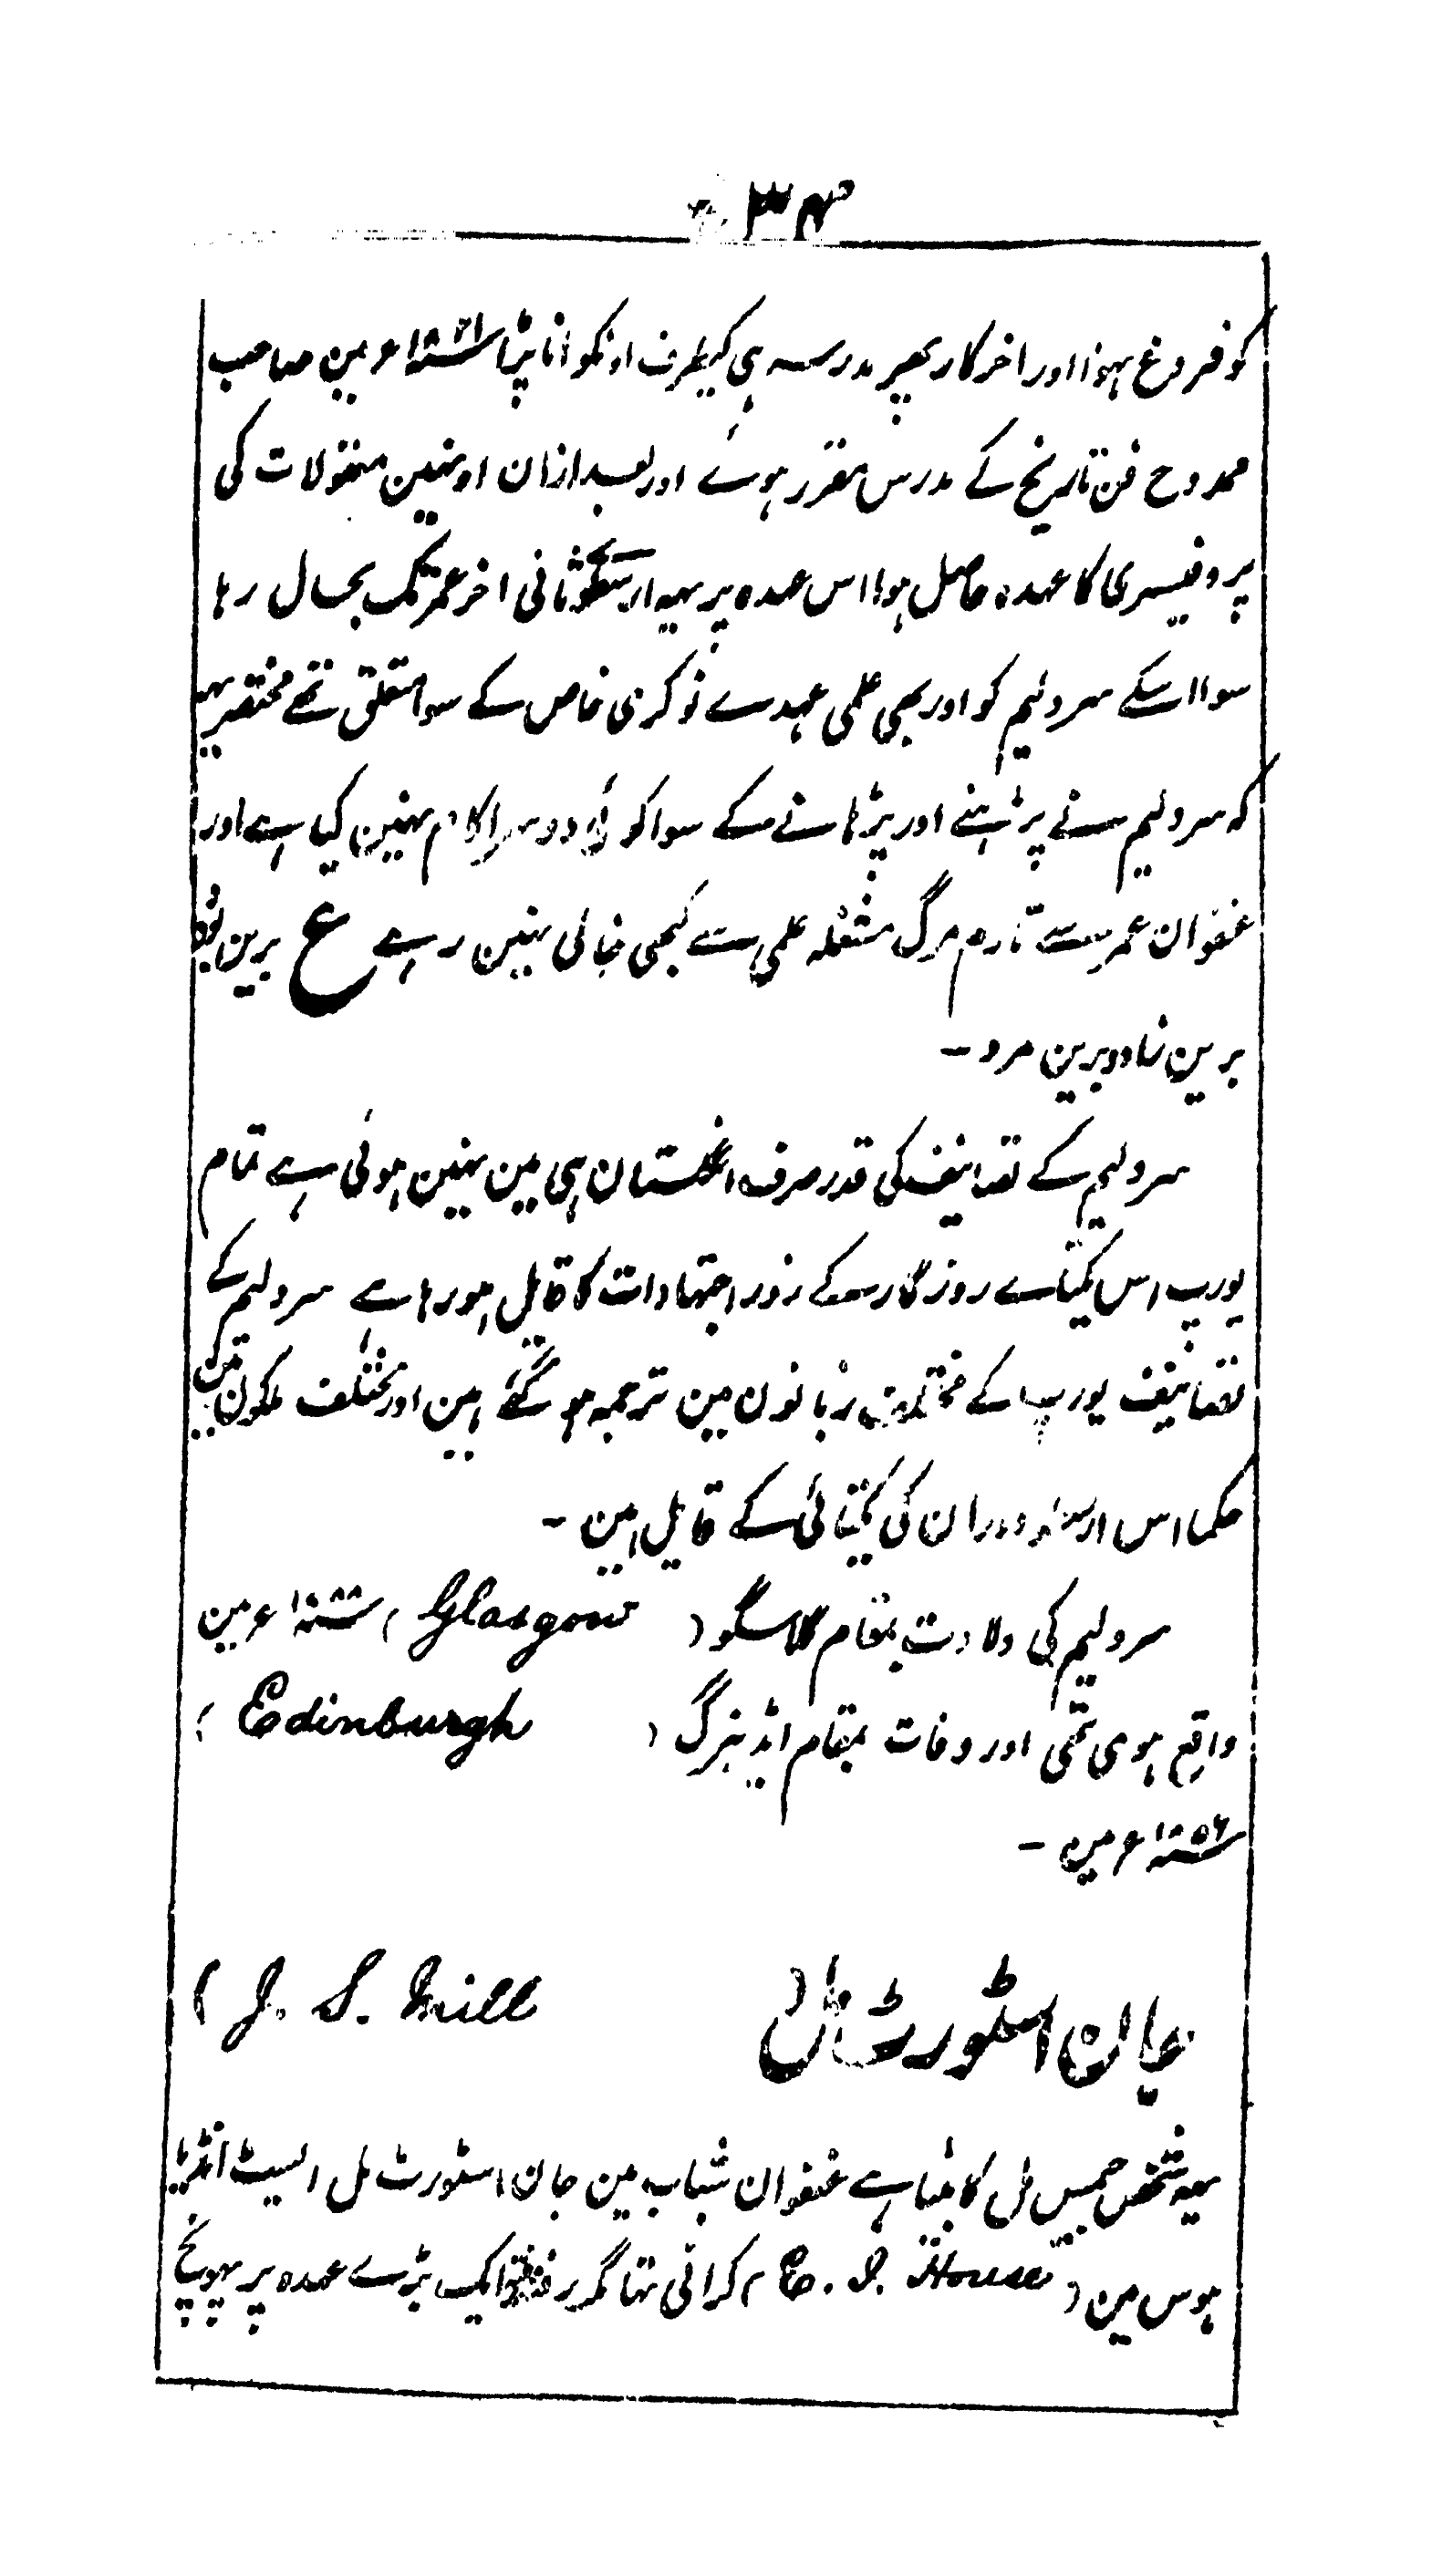 کو فروغ نہوا اور اخر کار پھر مدرسہ ہی کیطرف اونکو انا پڑا سنہ۱۸۲۱ء مین صاحب
ممدوح فن تاریخ کے مدرس مقرر ہوئے اور بعد ازان اونہین منقولات کی
پروفیسری کا عہدہ حاصل ہوا اس عہدہ پر یہہ ارسطوئے ثانی اخر عمر تک بحال رہا
سوا اسکے سر ولیم کو اور بھی علمی عہدے نوکری خاص کے سوا متعلق تھے مختصر یہہ
کہ سر ولیم نے پڑہنے اور پڑہانے کے سوا کوئی دوسرا کام نہین کیا ہے اور
عنفوان عمر سے تا دم مرگ مشغلہ علمی سے کبھی خالی نہین رہے ع برین بود
برین زاد و برین مرد -
سر ولیم کے تصانیف کی قدر صرف انگلستان ہی مین نہین ہوئی ہے تمام
یورپ اس یکتاے روزگار کے زور اجتہادات کا قایل ہو رہا ہے سر ولیم کے
تصانیف یورپ کے مختلف زبانون مین ترجمہ ہو گئے ہین اور مختلف ملکون مین
حکما اس ارسطوے دوران کی یکتائی کے قایل ہین -
سر ولیم کی ولادت بمقام گلاسگو ( Glasgow ) سنہ۱۷۸۸ء مین
واقع ہوی تھی اور وفات بمقام اڈنبرگ ( Edinburgh )
سنہ۱۸۵۶ء مین -
جان اسٹورٹ مل ( J. S. Mill )
یہہ شخص جمیس مل کا بیٹا ہے عنفوان شباب مین جان اسٹورٹ مل ایسٹ انڈیا
ہوس مین ( E. I. House ) کرانی تہا مگر رفتہ رفتہ ایک بڑے عہدہ پر پہونچ